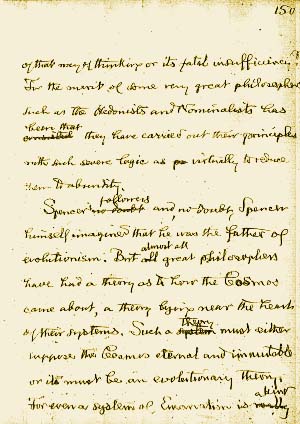 150
of that way of thinking or its fatal insufficiency.
For the merit of some very great philosophers
such as the Hedonists and Nominalists has
been that
they have carried out their principles
with such severe logic as virtually to reduce
them to absurdity.
followers
Spencer no doubt and, no doubt, Spencer
himself imagined that he was the father of
almost all
evolutionism. But all great philosophers
have had a theory as to how the Cosmos
came about, a theory lying near the hearts
of their systems. Such a system must either
theory
suppose the Cosmos eternal and immutable
or its must be an evolutionary theory.
akin
For even a system of Emanation is really